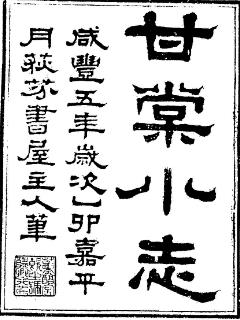 甘棠小志
咸豐五年歲次乙卯嘉平
月荻芬書屋主人筆